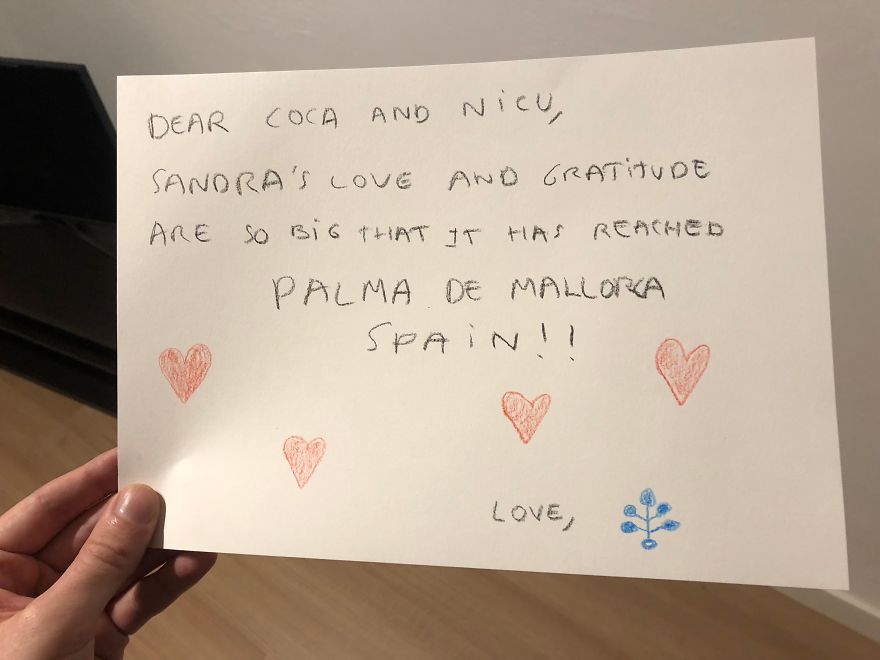 DEAR COCA AND NiCU,
SANDRA'S LOVE AND GRATiTUDE
ARE SO BiG THAT IT HAS REACHED
PALMA DE MALLORCA
SPAiN!!
LOVE,